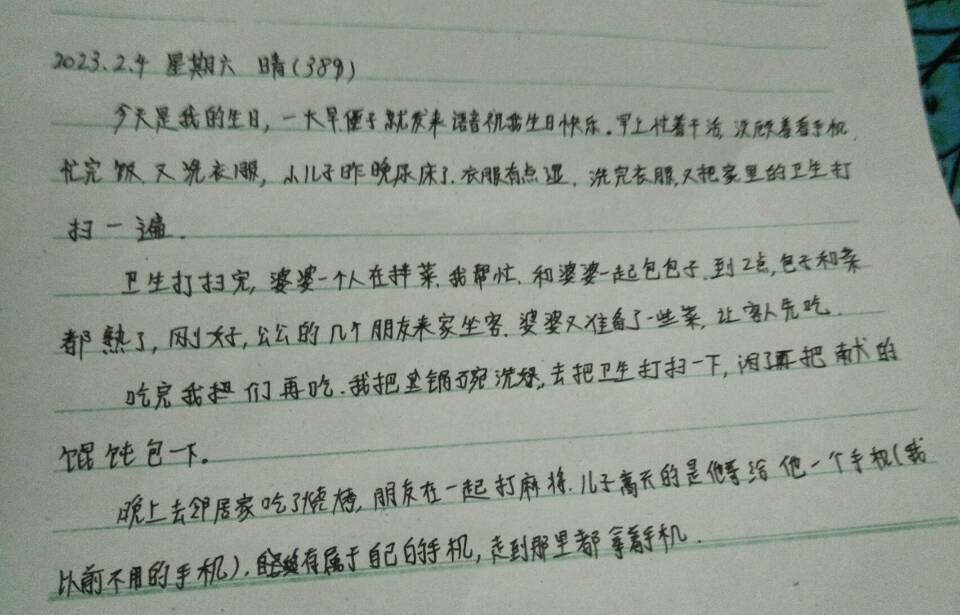 2023.2.4 星期六 晴(389)
今天是我的生日,一大早便子就发来语音祝我生日快乐。早上忙着干活,没顾着看手机.
忙完饭又洗衣服,小儿子昨晚尿床了.衣服有点湿.洗完衣服,又把家里的卫生打
扫一遍.
卫生打扫完,婆婆一个人在择菜.我帮忙.和婆婆一起包包子.到2点,包子和菜
都熟了,刚好,公公的几个朋友来家坐客.婆婆又准备了一些菜,让客人先吃.
吃完我们再吃.我把锅碗洗好,去把卫生打扫一下,闲了再把献的
馄饨包一下。
晚上去邻居家吃了烧烤,朋友在一起打麻将.儿子高兴的是他哥给他一个手机(我
以前不用的手机).有属于自己的手机,走到那里都拿着手机.